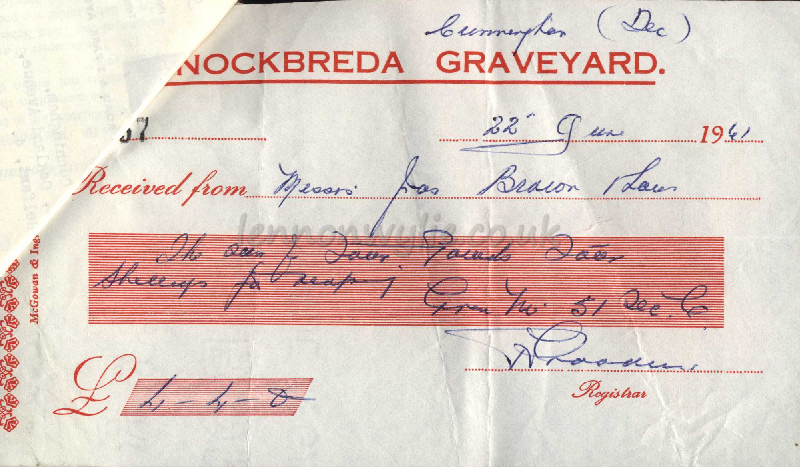 Cunningham (Dec)
NOCKBREDA GRAVEYARD.
57
22 June 1961
Received from Messrs Jas Brown & Sons
lennonwylie.co.uk
The sum of Four Pounds Four
Shillings for reopening
Grave No. 51 Sec. C.
£ 4-4-0
Registrar
McGowan & Ing